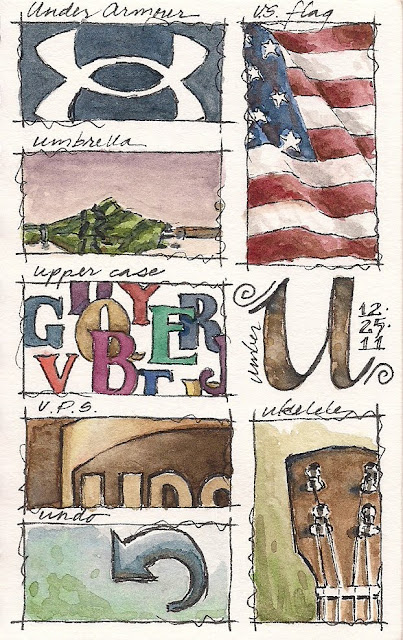 Under Armour
U.S. flag
umbrella
upper case
umber
U
12·
25·
11
U.P.S.
ukelele
undo